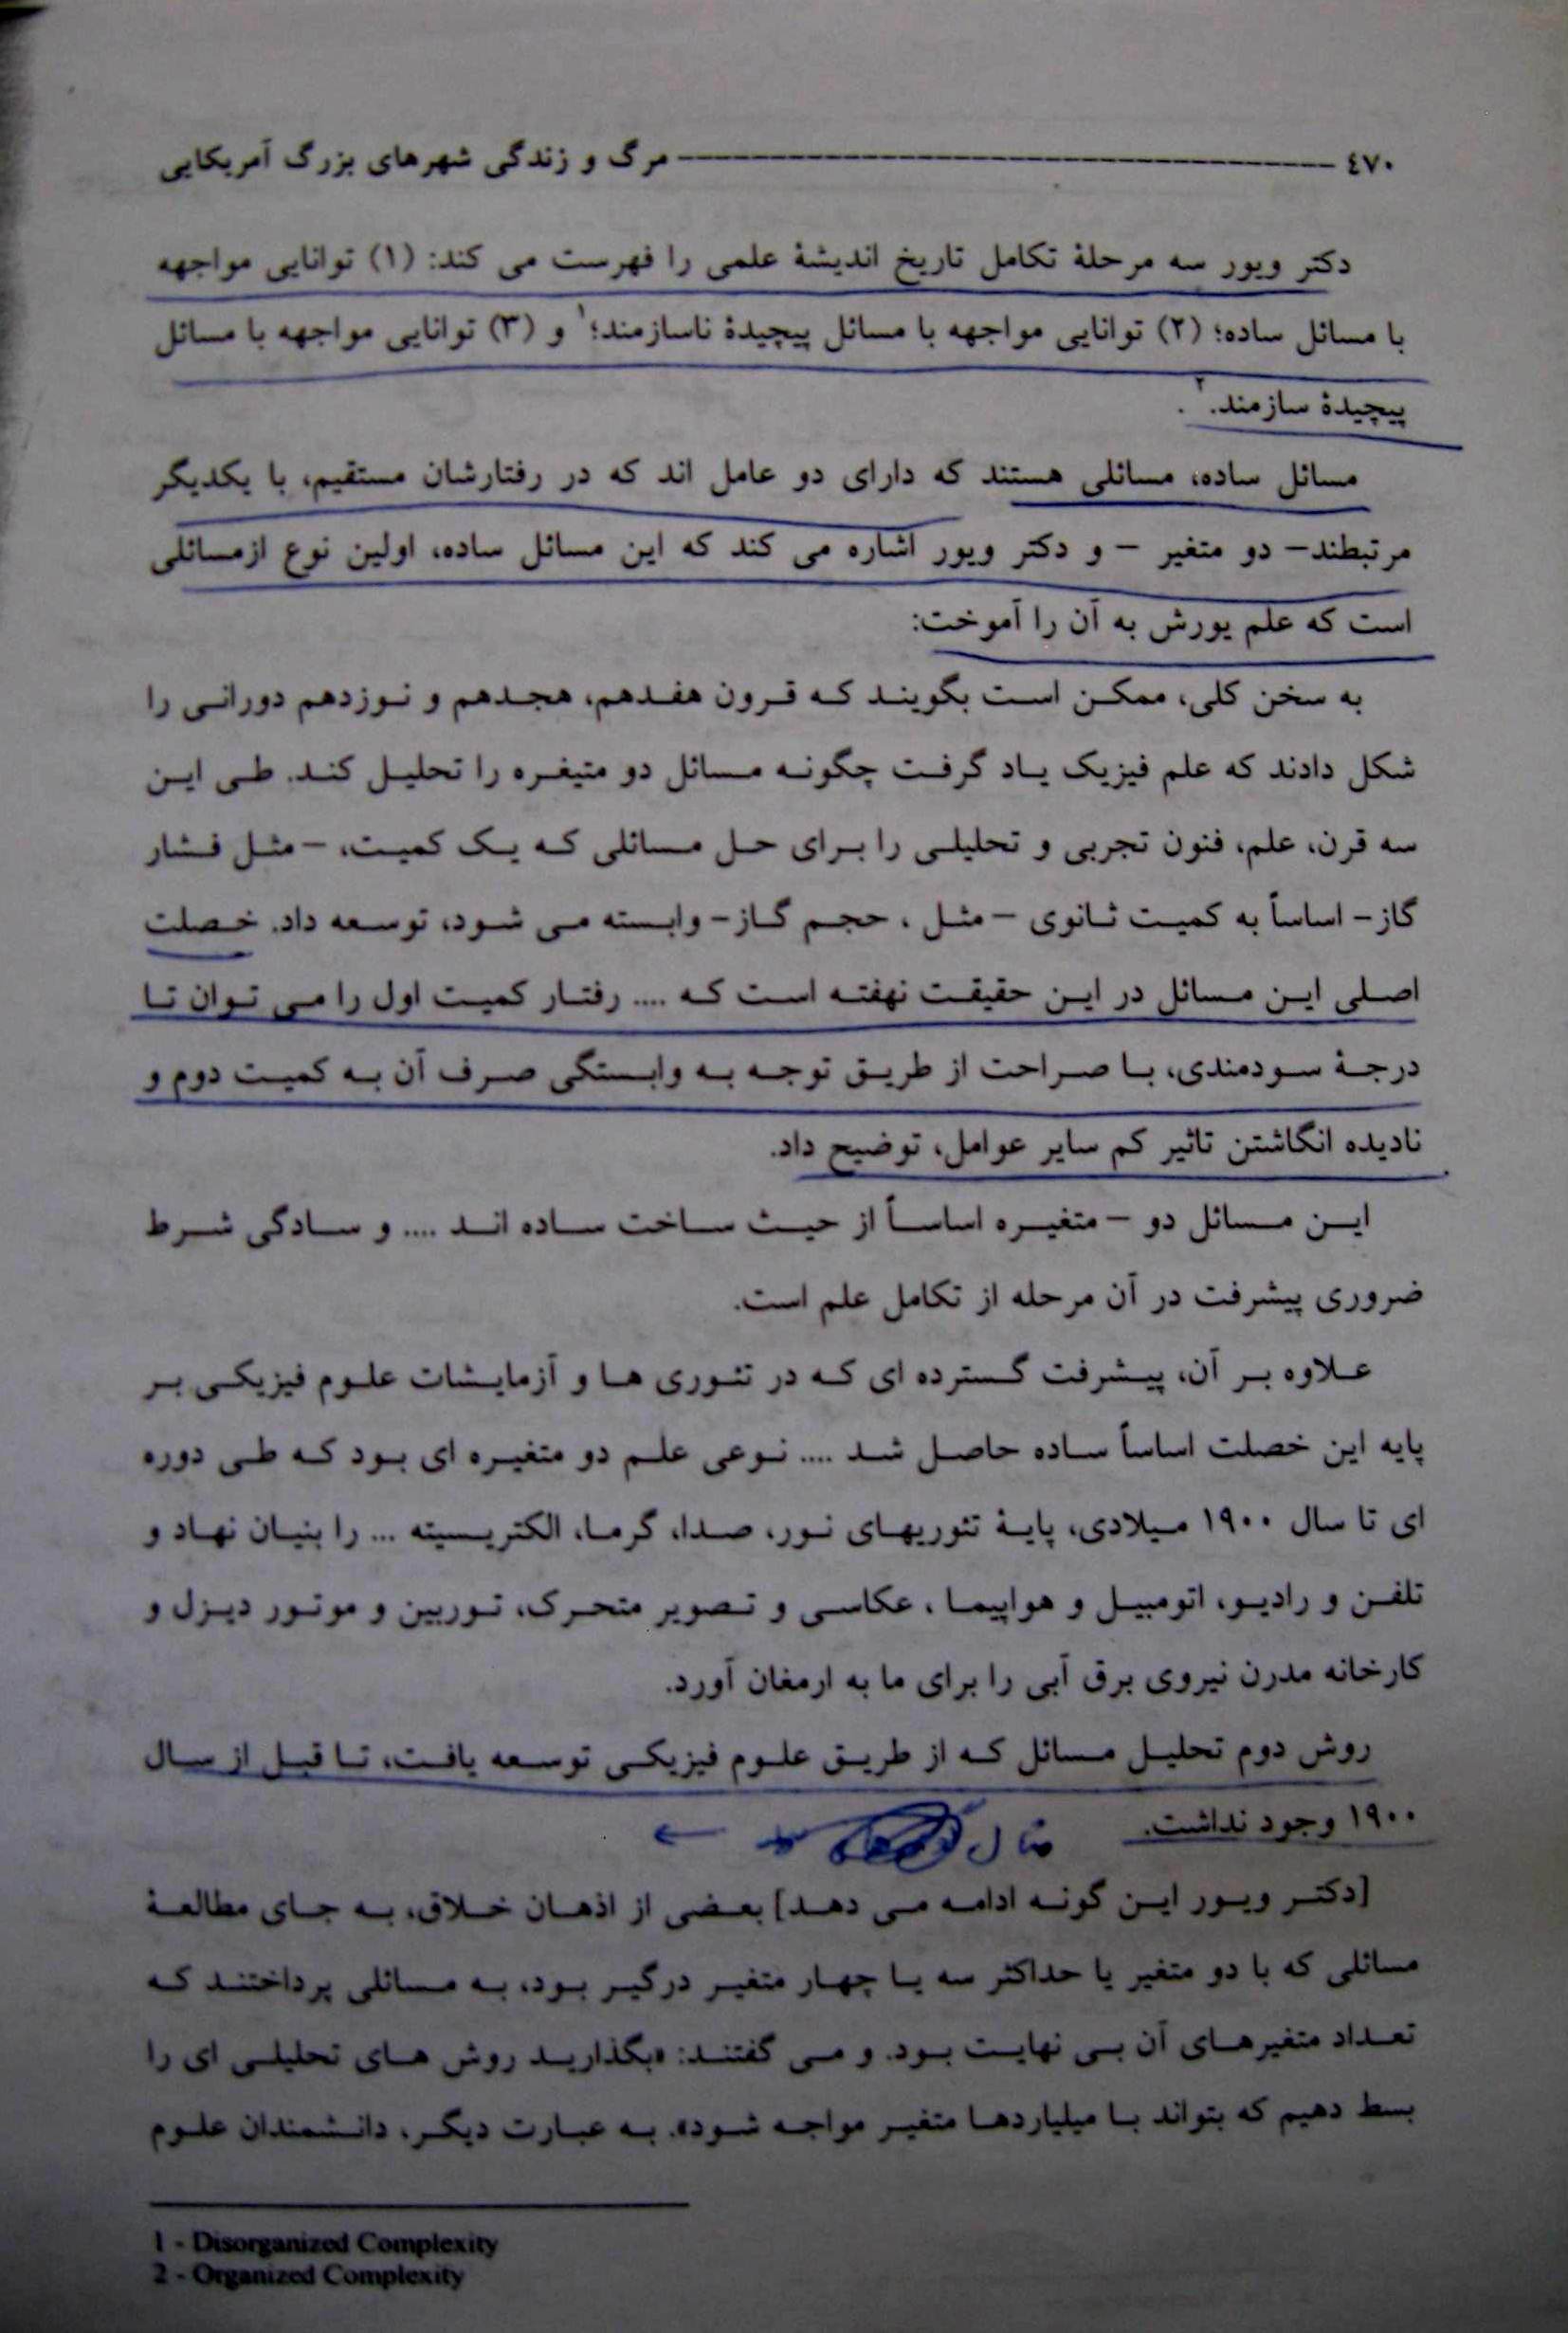 ٤٧٠ ---------- مرگ و زندگی شهرهای بزرگ آمریکایی
دکتر ویور سه مرحلۀ تکامل تاریخ اندیشۀ علمی را فهرست می کند: (١) توانایی مواجهه
با مسائل ساده؛ (٢) توانایی مواجهه با مسائل پیچیدۀ ناسازمند؛١ و (٣) توانایی مواجهه با مسائل
پیچیدۀ سازمند.٢ .
مسائل ساده، مسائلی هستند که دارای دو عامل اند که در رفتارشان مستقیم، با یکدیگر
مرتبطند– دو متغیر – و دکتر ویور اشاره می کند که این مسائل ساده، اولین نوع ازمسائلی
است که علم یورش به آن را آموخت:
به سخن کلی، ممکن است بگویند که قرون هفدهم، هجدهم و نوزدهم دورانی را
شکل دادند که علم فیزیک یاد گرفت چگونه مسائل دو متیغره را تحلیل کند. طی این
سه قرن، علم، فنون تجربی و تحلیلی را برای حل مسائلی که یک کمیت، – مثل فشار
گاز– اساساً به کمیت ثانوی – مثل ، حجم گاز– وابسته می شود، توسعه داد. خصلت
اصلی این مسائل در این حقیقت نهفته است که .... رفتار کمیت اول را می توان تا
درجۀ سودمندی، با صراحت از طریق توجه به وابستگی صرف آن به کمیت دوم و
نادیده انگاشتن تاثیر کم سایر عوامل، توضیح داد.
این مسائل دو – متغیره اساساً از حیث ساخت ساده اند .... و سادگی شرط
ضروری پیشرفت در آن مرحله از تکامل علم است.
علاوه بر آن، پیشرفت گسترده ای که در تئوری ها و آزمایشات علوم فیزیکی بر
پایه این خصلت اساساً ساده حاصل شد .... نوعی علم دو متغیره ای بود که طی دوره
ای تا سال ١٩٠٠ میلادی، پایۀ تئوریهای نور، صدا، گرما، الکتریسیته ... را بنیان نهاد و
تلفن و رادیو، اتومبیل و هواپیما ، عکاسی و تصویر متحرک، توربین و موتور دیزل و
کارخانه مدرن نیروی برق آبی را برای ما به ارمغان آورد.
روش دوم تحلیل مسائل که از طریق علوم فیزیکی توسعه یافت، تا قبل از سال
١٩٠٠ وجود نداشت. مثال ←
[دکتر ویور این گونه ادامه می دهد] بعضی از اذهان خلاق، به جای مطالعۀ
مسائلی که با دو متغیر یا حداکثر سه یا چهار متغیر درگیر بود، به مسائلی پرداختند که
تعداد متغیرهای آن بی نهایت بود. و می گفتند: «بگذارید روش های تحلیلی ای را
بسط دهیم که بتواند با میلیاردها متغیر مواجه شود». به عبارت دیگر، دانشمندان علوم
1 - Disorganized Complexity
2 - Organized Complexity